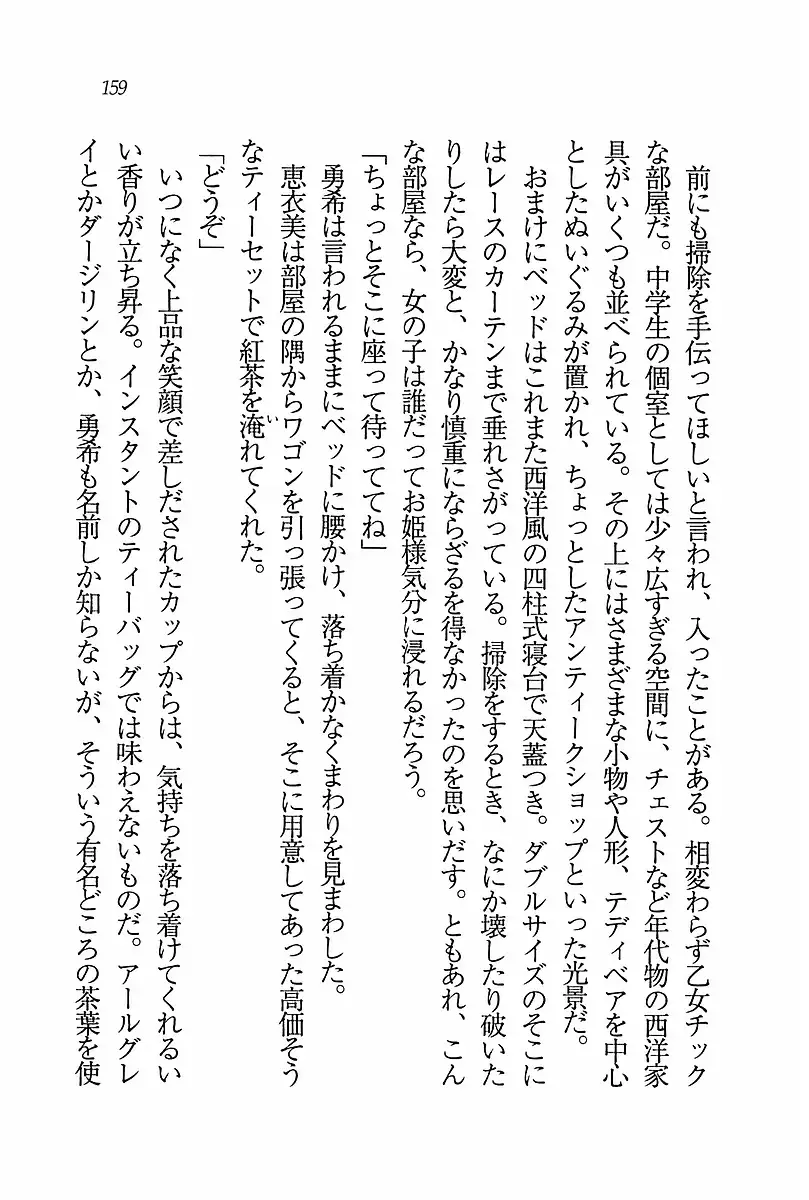 159
前にも掃除を手伝ってほしいと言われ、入ったことがある。相変わらず乙女チック
な部屋だ。中学生の個室としては少々広すぎる空間に、チェストなど年代物の西洋家
具がいくつも並べられている。その上にはさまざまな小物や人形、テディベアを中心
としたぬいぐるみが置かれ、ちょっとしたアンティークショップといった光景だ。
おまけにベッドはこれまた西洋風の四柱式寝台で天蓋つき。ダブルサイズのそこに
はレースのカーテンまで垂れさがっている。掃除をするとき、なにか壊したり破いた
りしたら大変と、かなり慎重にならざるを得なかったのを思いだす。ともあれ、こん
な部屋なら、女の子は誰だってお姫様気分に浸れるだろう。
「ちょっとそこに座って待っててね」
勇希は言われるままにベッドに腰かけ、落ち着かなくまわりを見まわした。
恵衣美は部屋の隅からワゴンを引っ張ってくると、そこに用意してあった高価そう
なティーセットで紅茶を淹れてくれた。
「どうぞ」
いつになく上品な笑顔で差しだされたカップからは、気持ちを落ち着けてくれるい
い香りが立ち昇る。インスタントのティーバッグでは味わえないものだ。アールグレ
イとかダージリンとか、勇希も名前しか知らないが、そういう有名どころの茶葉を使